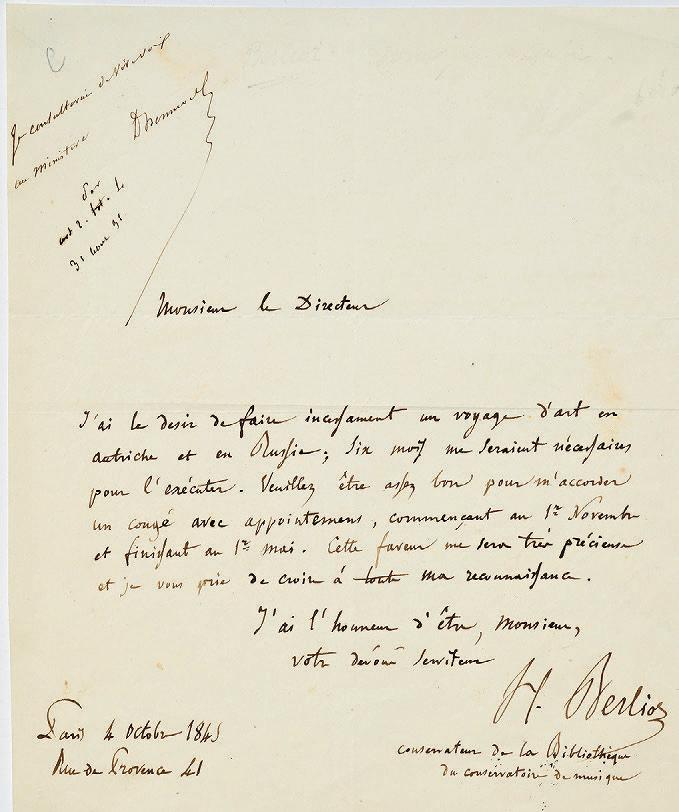 Je consulterai
au Ministère
Monsieur le Directeur
J'ai le desir de faire incessament un voyage d'art en
autriche et en Russie; Six mois me seraient nécessaires
pour l'exécuter. Veuillez être assez bon pour m'accorder
un congé avec appointemens, commençant au 1er Novembre
et finissant au 1er mai. Cette faveur me sera très précieuse
et je vous prie de croire à toute ma reconnaissance.
J'ai l'honneur d'être, Monsieur,
votre dévoué serviteur
H. Berlioz
conservateur de la Bibliothèque
du conservatoire de musique
Paris 4 Octobre 1845
Rue de Provence 41